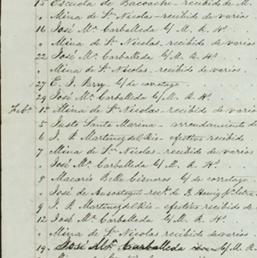 15 Escuela de Bacoachi - recibido de M.
" Mina de Sn Nicolas - recibido de varios
16 José Ma Carballeda c/ M. R. Hs.
" Mina de Sn Nicolas, recibido de varios
22 José Ma Carballeda c/ M. R. Hs.
" Mina de Sn Nicolas, recibido de varios
27 E. J. Perry c/ de corretage
29 José Ma Carballeda c/ M. R. Hs.
Febo 1o Mina de Sn Nicolas - recibido de varios
5 Justo Santa Marina - arrendamiento
6 J. P. Martinez del Rio - efectivo recibido
7 Mina de Sn Nicolas - recibido de varios
" José Ma Carballeda c/ M. R. Hs.
" Macario Bello Cisneros c/ de corretage
" José de Ansoategui recdo. de
9 J. P. Martinez del Rio - efectivo recibido
12 José Ma Carballeda c/ M. R. Hs.
" Mina de Sn Nicolas - recibido de varios
19 José Ma Carballeda c/ M. R.